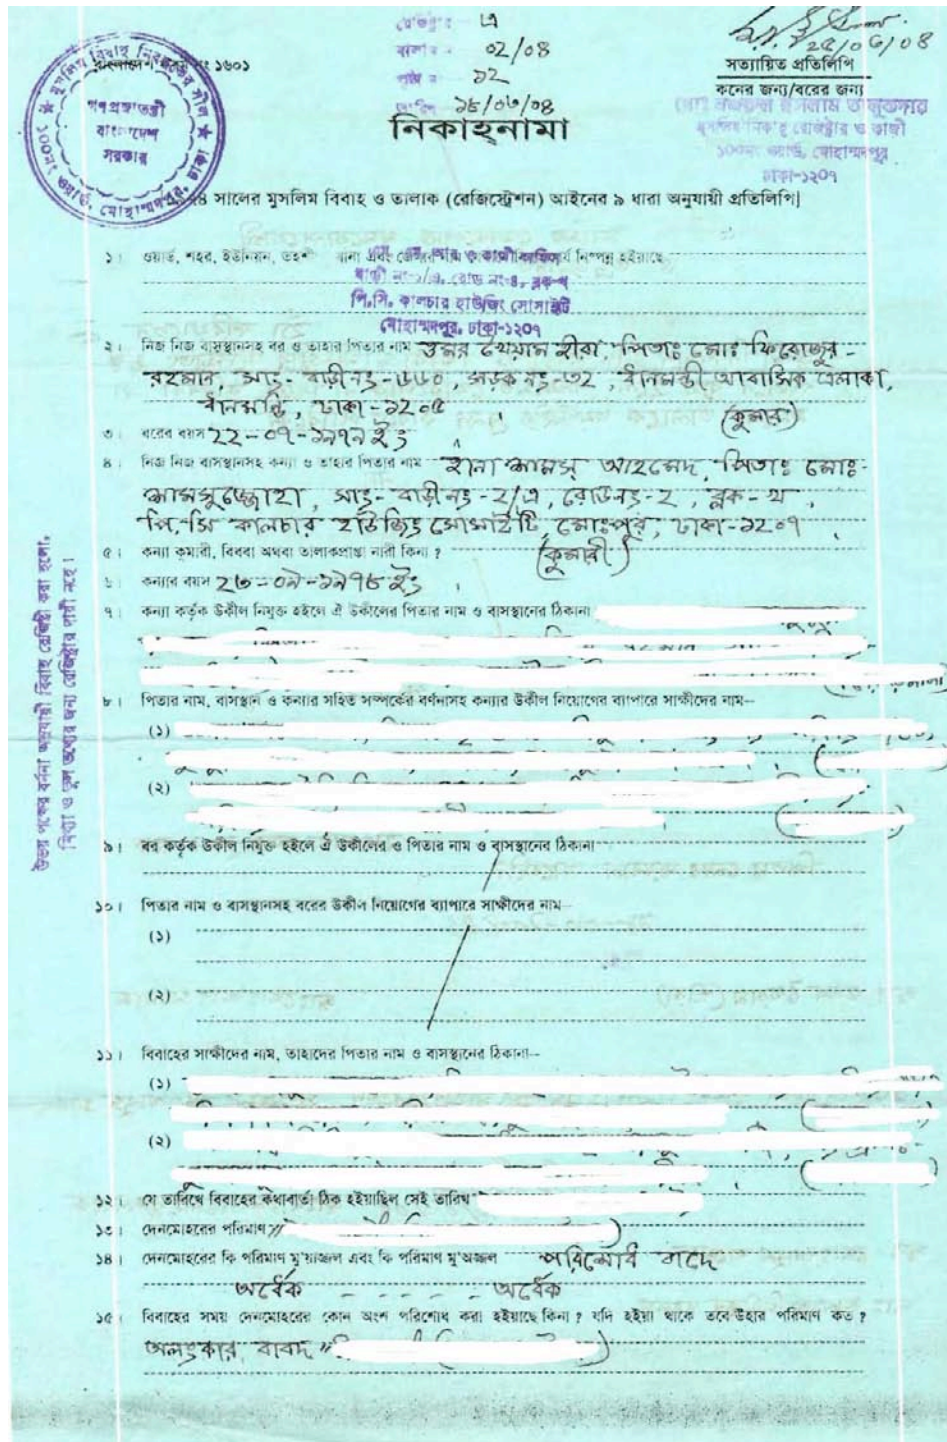 রেজিষ্টার এ
বালাম - ০২/০৪
পৃষ্ঠা নং ১২
তারিখ ১৮/০৬/০৪
২৫/০৬/০৪
বাংলাদেশ ফরম নং ১৬০১
সত্যায়িত প্রতিলিপি
কনের জন্য/বরের জন্য
মুসলিম বিবাহ নিবন্ধকের সীল
১০০নং ওয়ার্ড, মোহাম্মদপুর, ঢাকা
গণপ্রজাতন্ত্রী
বাংলাদেশ
সরকার
নিকাহ্‌নামা
ইসলাম তালুকদার
মুসলিম নিকাহ্ রেজিষ্টার ও কাজী
১০০নং ওয়ার্ড, মোহাম্মদপুর
ঢাকা-১২০৭
১৯৭৪ সালের মুসলিম বিবাহ ও তালাক (রেজিস্ট্রেশন) আইনের ৯ ধারা অনুযায়ী প্রতিলিপি]
১। ওয়ার্ড, শহর, ইউনিয়ন, তহশী থানা এবং জেলার নিষ্পন্ন হইয়াছে
বাড়ী নং-১/এ, রোড নং-৪, ব্লক-খ
পি,সি, কালচার হাউজিং সোসাইটি
মোহাম্মদপুর, ঢাকা-১২০৭
২। নিজ নিজ বাসস্থানসহ বর ও তাহার পিতার নাম ওমর খৈয়াম হীরা, পিতাঃ মোঃ ফিরোজুর-
রহমান, সাং- বাড়ী নং-৬৬০, সড়ক নং-৩২, ধানমন্ডী আবাসিক এলাকা,
ধানমন্ডি, ঢাকা-১২০৫
(কুমার)
৩। বরের বয়স ২২-০৭-১৯৭৭ ইং
৪। নিজ নিজ বাসস্থানসহ কন্যা ও তাহার পিতার নাম হানা শামস্ আহমেদ, পিতাঃ মোঃ-
শামসুজ্জোহা, সাং- বাড়ী নং-২/এ, রোড নং-২, ব্লক-খ,
পি.সি কালচার হাউজিং সোসাইটি, মোঃপুর, ঢাকা-১২০৭
৫। কন্যা কুমারী, বিধবা অথবা তালাকপ্রাপ্তা নারী কিনা ? (কুমারী)
৬। কন্যার বয়স ২৬-০৯-১৯৭৮ ইং
৭। কন্যা কর্তৃক উকীল নিযুক্ত হইলে ঐ উকীলের পিতার নাম ও বাসস্থানের ঠিকানা
৮। পিতার নাম, বাসস্থান ও কন্যার সহিত সম্পর্কের বর্ণনাসহ কন্যার উকীল নিয়োগের ব্যাপারে সাক্ষীদের নাম—
(১)
(২)
৯। বর কর্তৃক উকীল নিযুক্ত হইলে ঐ উকীলের ও পিতার নাম ও বাসস্থানের ঠিকানা
১০। পিতার নাম ও বাসস্থানসহ বরের উকীল নিয়োগের ব্যাপারে সাক্ষীদের নাম—
(১)
(২)
১১। বিবাহের সাক্ষীদের নাম, তাহাদের পিতার নাম ও বাসস্থানের ঠিকানা—
(১)
(২)
১২। যে তারিখে বিবাহের কথাবার্তা ঠিক হইয়াছিল সেই তারিখ
১৩। দেনমোহরের পরিমাণ
১৪। দেনমোহরের কি পরিমাণ মু'য়াজ্জল এবং কি পরিমাণ মু'অজ্জল পরিশোধ বাদে
অর্ধেক - - - - - অর্ধেক
১৫। বিবাহের সময় দেনমোহরের কোন অংশ পরিশোধ করা হইয়াছে কিনা ? যদি হইয়া থাকে তবে উহার পরিমাণ কত ?
অলংকার বাবদ
উভয় পক্ষের বর্ননা অনুযায়ী বিবাহ রেজিষ্ট্রী করা হলো,
মিথ্যা ও ভুল তথ্যের জন্য রেজিষ্ট্রার দায়ী নহে।